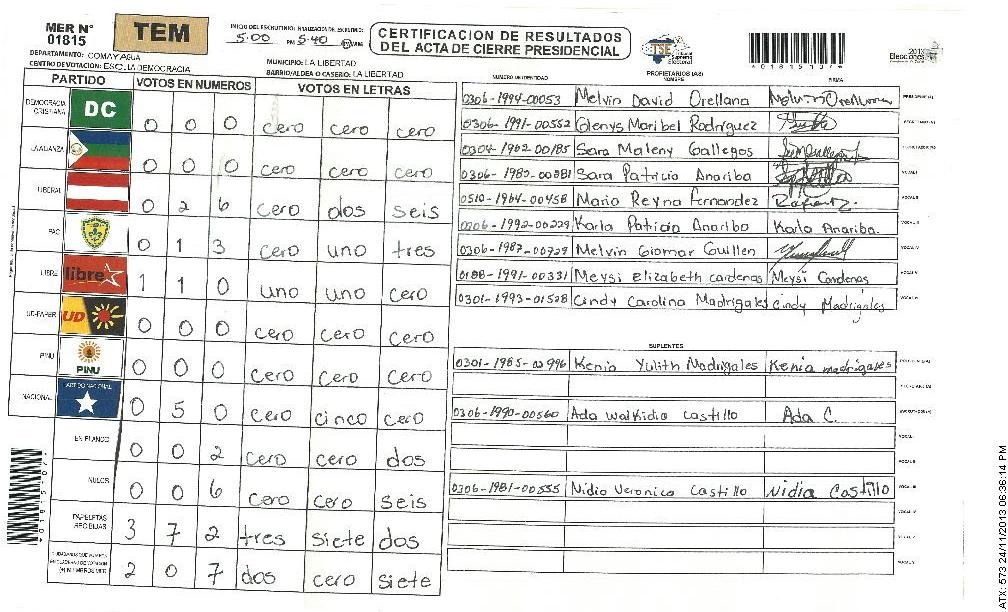 MER N° 01815
TEM
INICIO DEL ESCRUTINIO: 5:00 PM
FINALIZACION DE ESCRUTINIO: 5:40
CERTIFICACION DE RESULTADOS
DEL ACTA DE CIERRE PRESIDENCIAL
TSE Tribunal Supremo Electoral
*01815107*
2013 Elecciones
DEPARTAMENTO: COMAYAGUA
MUNICIPIO: LA LIBERTAD
CENTRO DE VOTACION: ESC. LA DEMOCRACIA
BARRIO/ALDEA O CASERO: LA LIBERTAD
PARTIDO VOTOS EN NUMEROS VOTOS EN LETRAS
DEMOCRACIA CRISTIANA DC 0 0 0 cero cero cero
LA ALIANZA 0 0 0 cero cero cero
LIBERAL 0 2 6 cero dos seis
PAC 0 1 3 cero uno tres
LIBRE libre 1 1 0 uno uno cero
UD-FAPER UD 0 0 0 cero cero cero
PINU PINU 0 0 0 cero cero cero
NACIONAL PARTIDO NACIONAL 0 5 0 cero cinco cero
EN BLANCO 0 0 2 cero cero dos
NULOS 0 0 6 cero cero seis
PAPELETAS RECIBIDAS 3 7 2 tres siete dos
2 0 7 dos cero siete
NUMERO IDENTIDAD PROPIETARIOS (AS) NOMBRE FIRMA
0306-1994-00053 Melvin David Orellana Melvin Orellana
0306-1991-00552 Glenys Maribel Rodriguez
0304-1962-00185 Sara Maleny Gallegos
0306-1985-00881 Sara Patricia Anariba
0510-1964-00458 Mario Reyna Fernandez
0306-1992-00229 Karla Patricia Anariba Karla Anariba.
0306-1987-00729 Melvin Giomar Guillen
0188-1991-00331 Meysi Elizabeth cardenas Meysi Cardenas
0301-1993-01528 Cindy Carolina Madrigales Cindy Madrigales
SUPLENTES
0301-1985-00996 Kenia Yulith Madrigales Kenia madrigales
0306-1990-00560 Ada Walkidia castillo Ada C.
0306-1981-00555 Nidia Veronica Castillo Nidia Castillo
*01815107*
ATX: 573 24/11/2013 06:36:14 PM